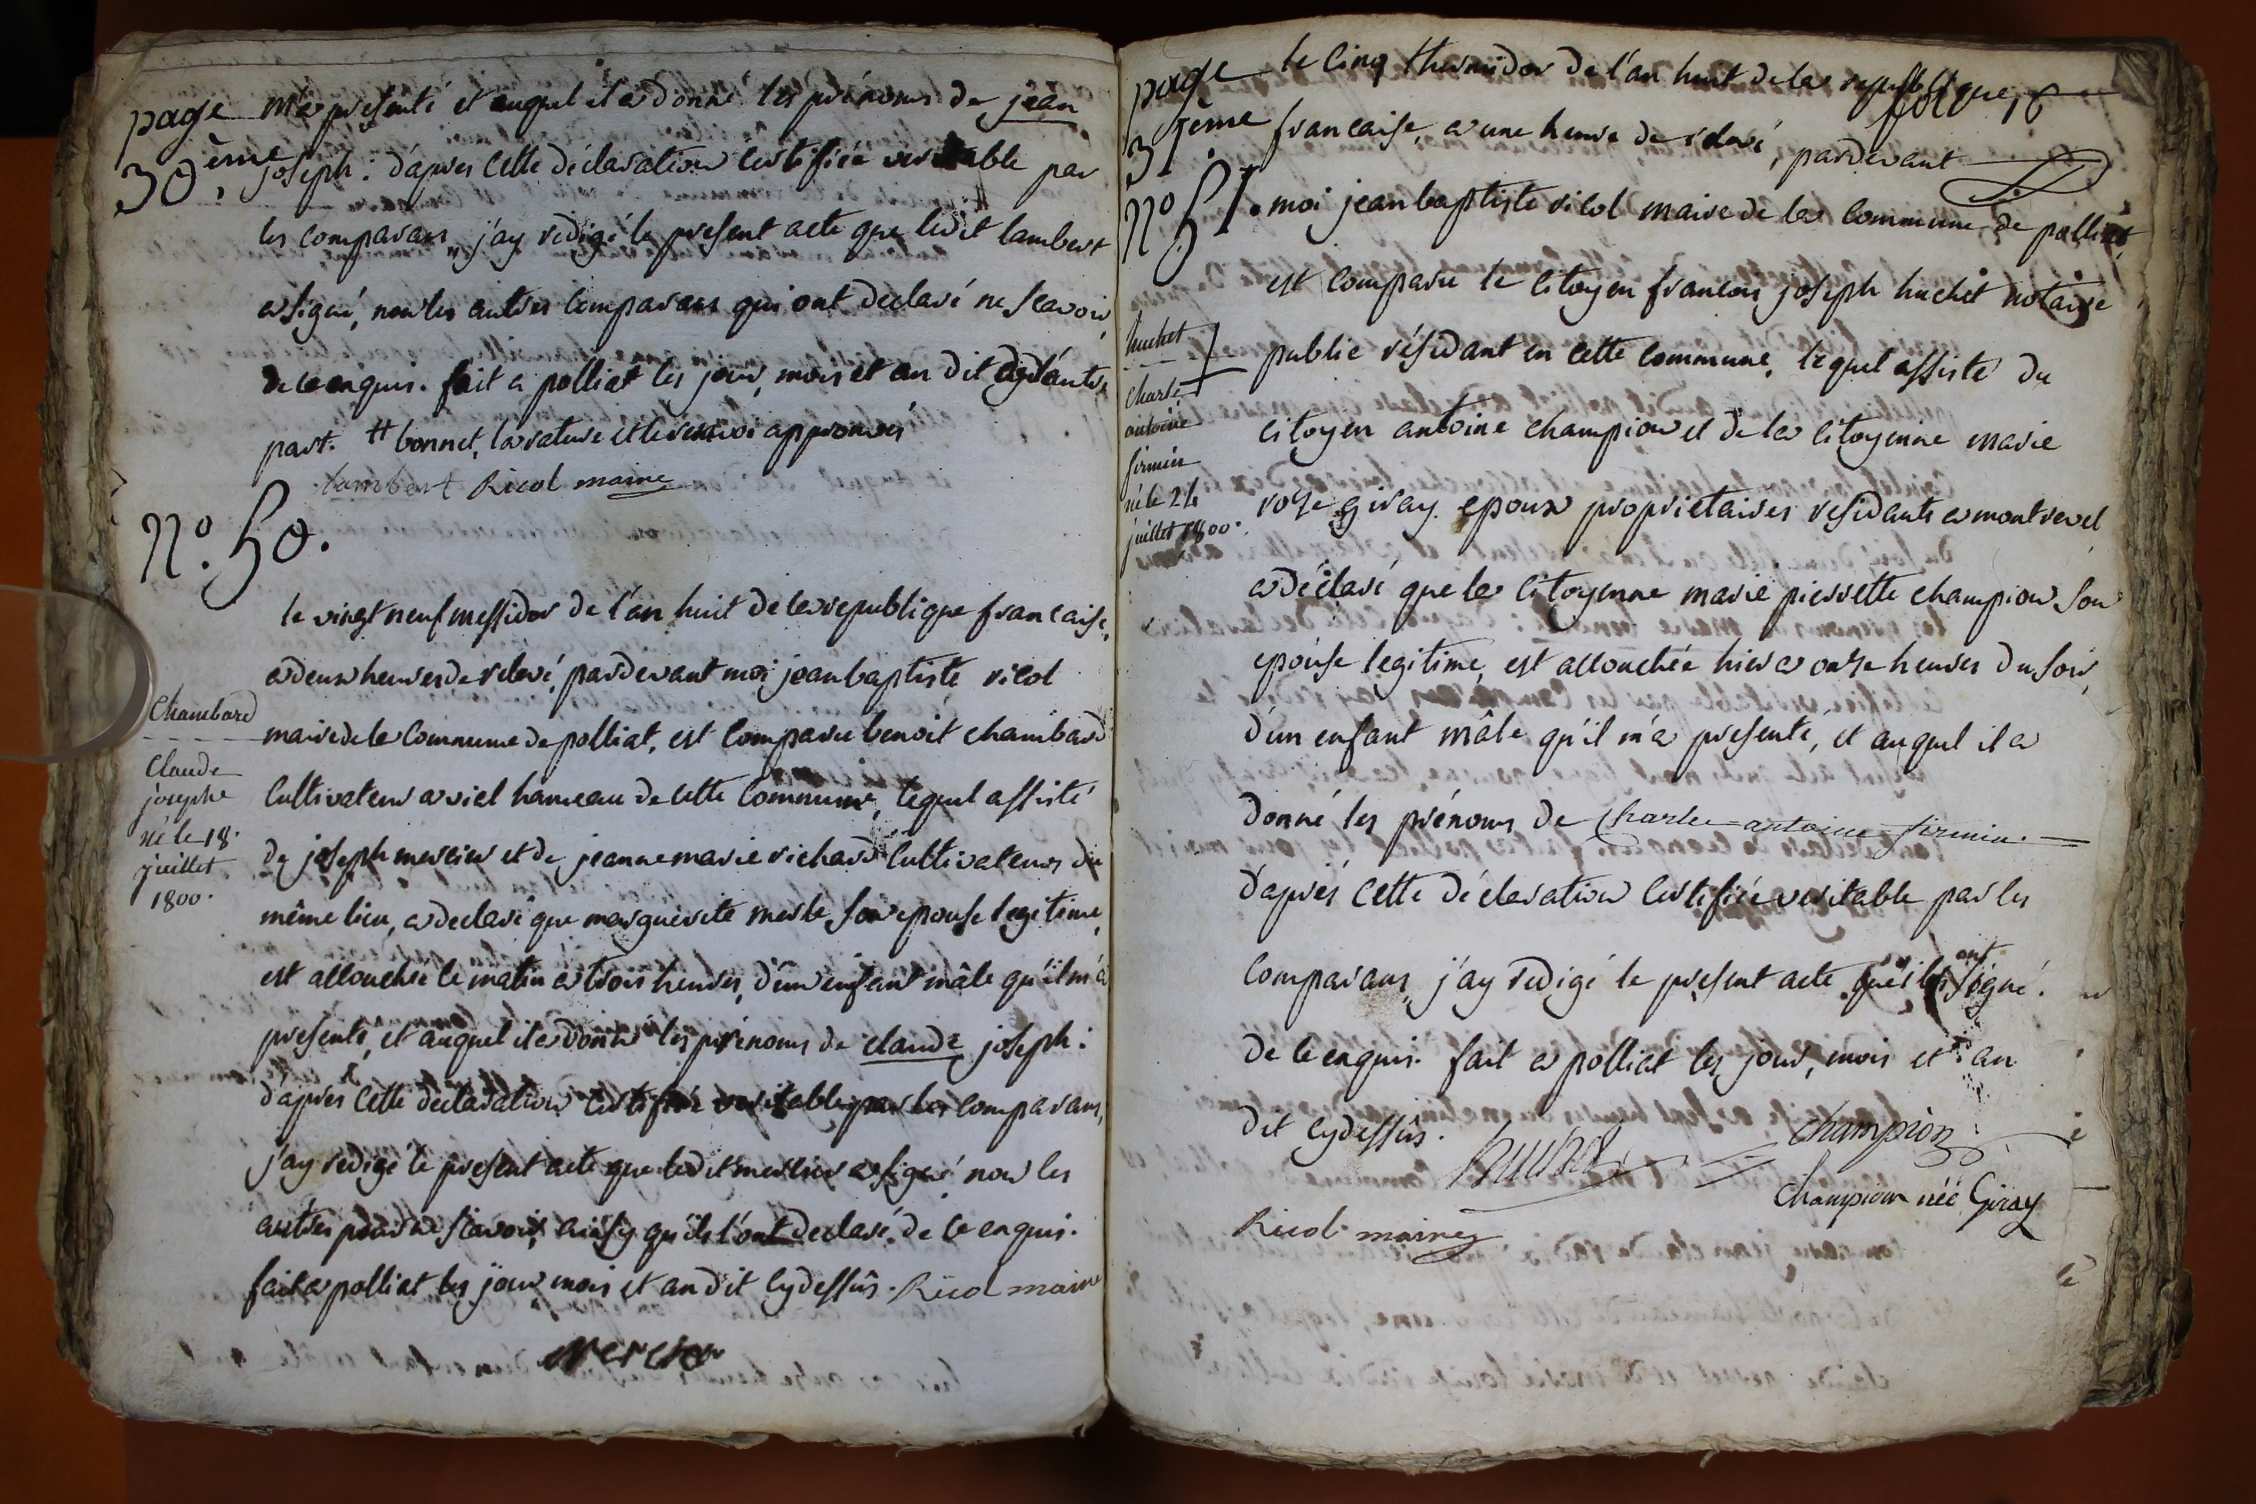 page
30ème
m'a présenté et auquel il a donné les prénoms de jean
joseph : d'après cette déclaration certifiée veritable par
les comparans, j'ay redigé le present acte que ledit lambert
a signé, non les autres comparans qui ont declaré ne scavoir,
de ce enquis. fait a polliat les jour, mois et an dit
part. # bonnet, la rature et le renvoi approuvés
lambert Ricol maire
N°. 50.
le vingt neuf messidor de l'an huit de la republique francaise,
a deux heures de relevé, pardevant moi jean baptiste ricol
maire de la commune de polliat, est comparu benoit chambard
cultivateur a viel hameau de cette commune, lequel assisté
de joseph mercier et de jeanne marie richard cultivateurs du
même lieu, a declaré que marguerite merle son epouse legitime,
est accouchée le matin a trois heures, d'un enfant mâle qu'il m'a
presenté, et auquel il a donné les prénoms de claude joseph :
d'après cette declaration certifiée veritable par les comparans,
j'ay redigé le present acte que ledit mercier a signé, non les
autres pour ne scavoir, ainsy qu'ils l'ont declaré, de ce enquis.
fait a polliat les jour, mois et an dit cydessûs. Ricol maire
mercier
Chambard
Claude
josephe
né le 18.
juillet
1800.
page
31eme
N° 51.
le cinq thermidor de l'an huit de la republique
francaise, a une heure de relevé, pardevant
moi jean baptiste ricol maire de la commune de polliat,
est comparu le citoyen francois joseph huchet notaire
public résidant en cette commune, lequel assisté du
citoyen antoine champion et de la citoyenne marie
roze giray epoux proprietaires residants a montrevel,
a déclaré que la citoyenne marie pierrette champion son
epouse legitime, est accouchée hier a onze heures du soir,
d'un enfant mâle qu'il m'a presenté, et auquel il a
donné les prénoms de Charle-antoine-firmin.
d'après cette déclaration certifiée veritable par les
comparans, j'ay redigé le present acte qu'ils ont signé.
de ce enquis. fait a polliat les jour, mois et an
dit cydessûs.
huchet
champion
Champion née Giray
Ricol maire
huchet
Charle
antoine
firmin
né le 24
juillet 1800.